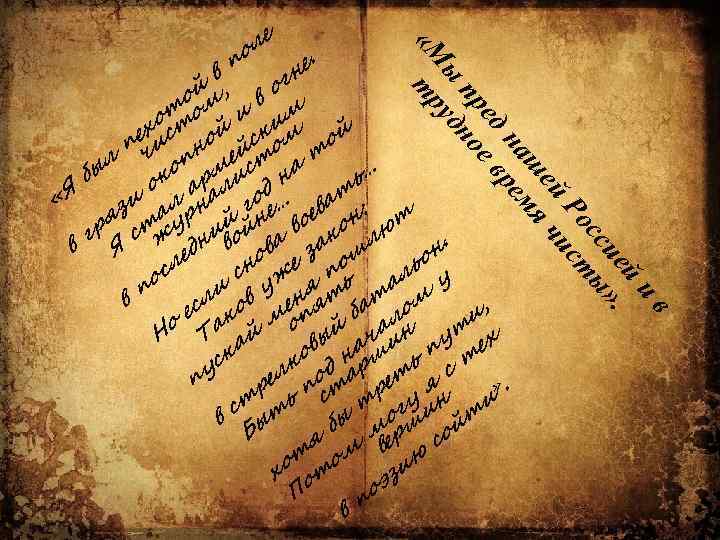 «Я был пехотой в поле
чистом,
в грязи окопной и в огне.
Я стал армейским
журналистом
в последний год на той
войне...
Но если снова воевать...
Таков уже закон:
пускай меня пошлют
опять
в стрелковый батальон.
Быть под началом у
старшин
хотя бы треть пути,
Потом могу я с тех
вершин
в поэзию сойти».
«Мы пред нашей Россией и в
трудное время чисты».